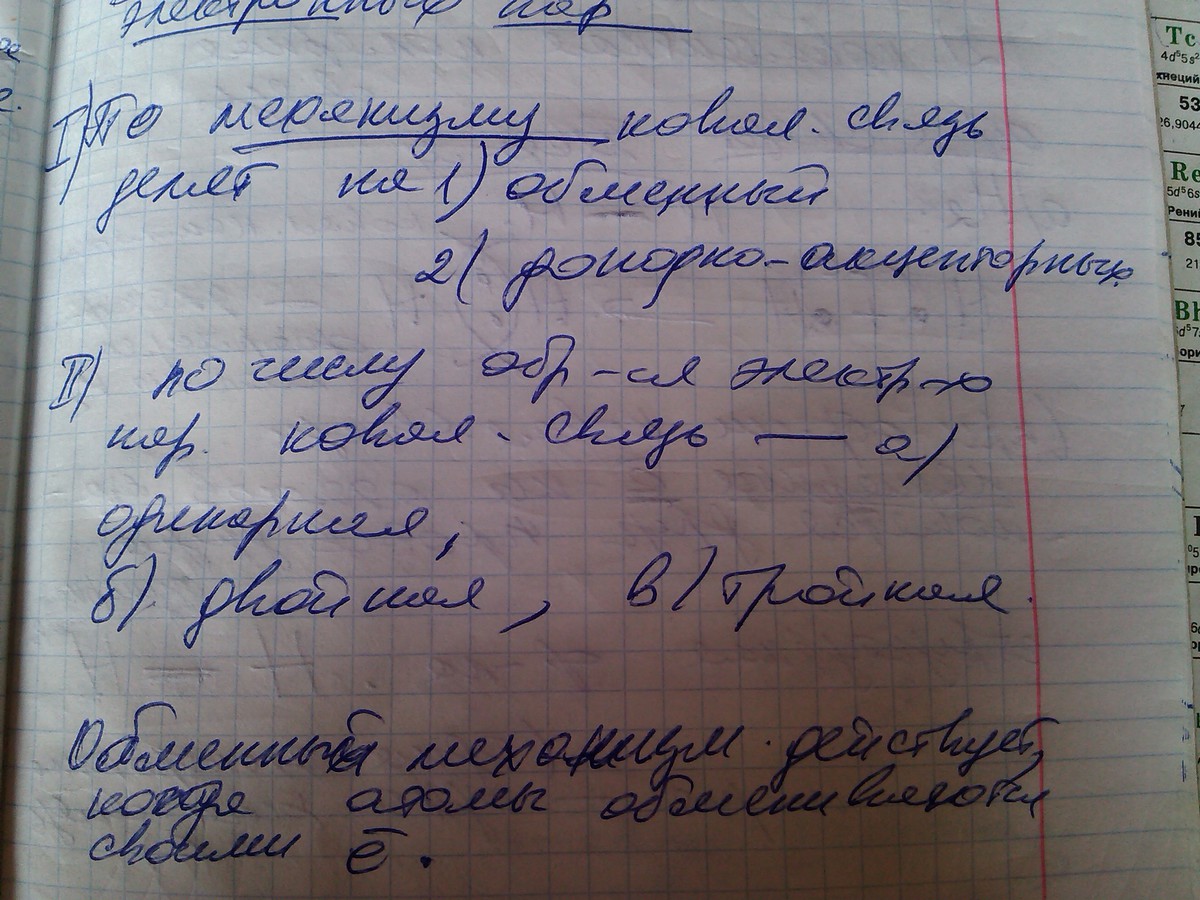 электронных пар
I) По механизму ковал. связь
делят на 1) обменный
2) донорно-акцепторный.
II) по числу обр-ся электр-х
пар. ковал. связь — а)
одинарная,
б) двойная, в) тройная.
Обменный механизм действует,
когда атомы обмениваются
своими ē.
Tc
4d⁵5s²
53
Re
5d⁵6s
Рений
85
21
Bh